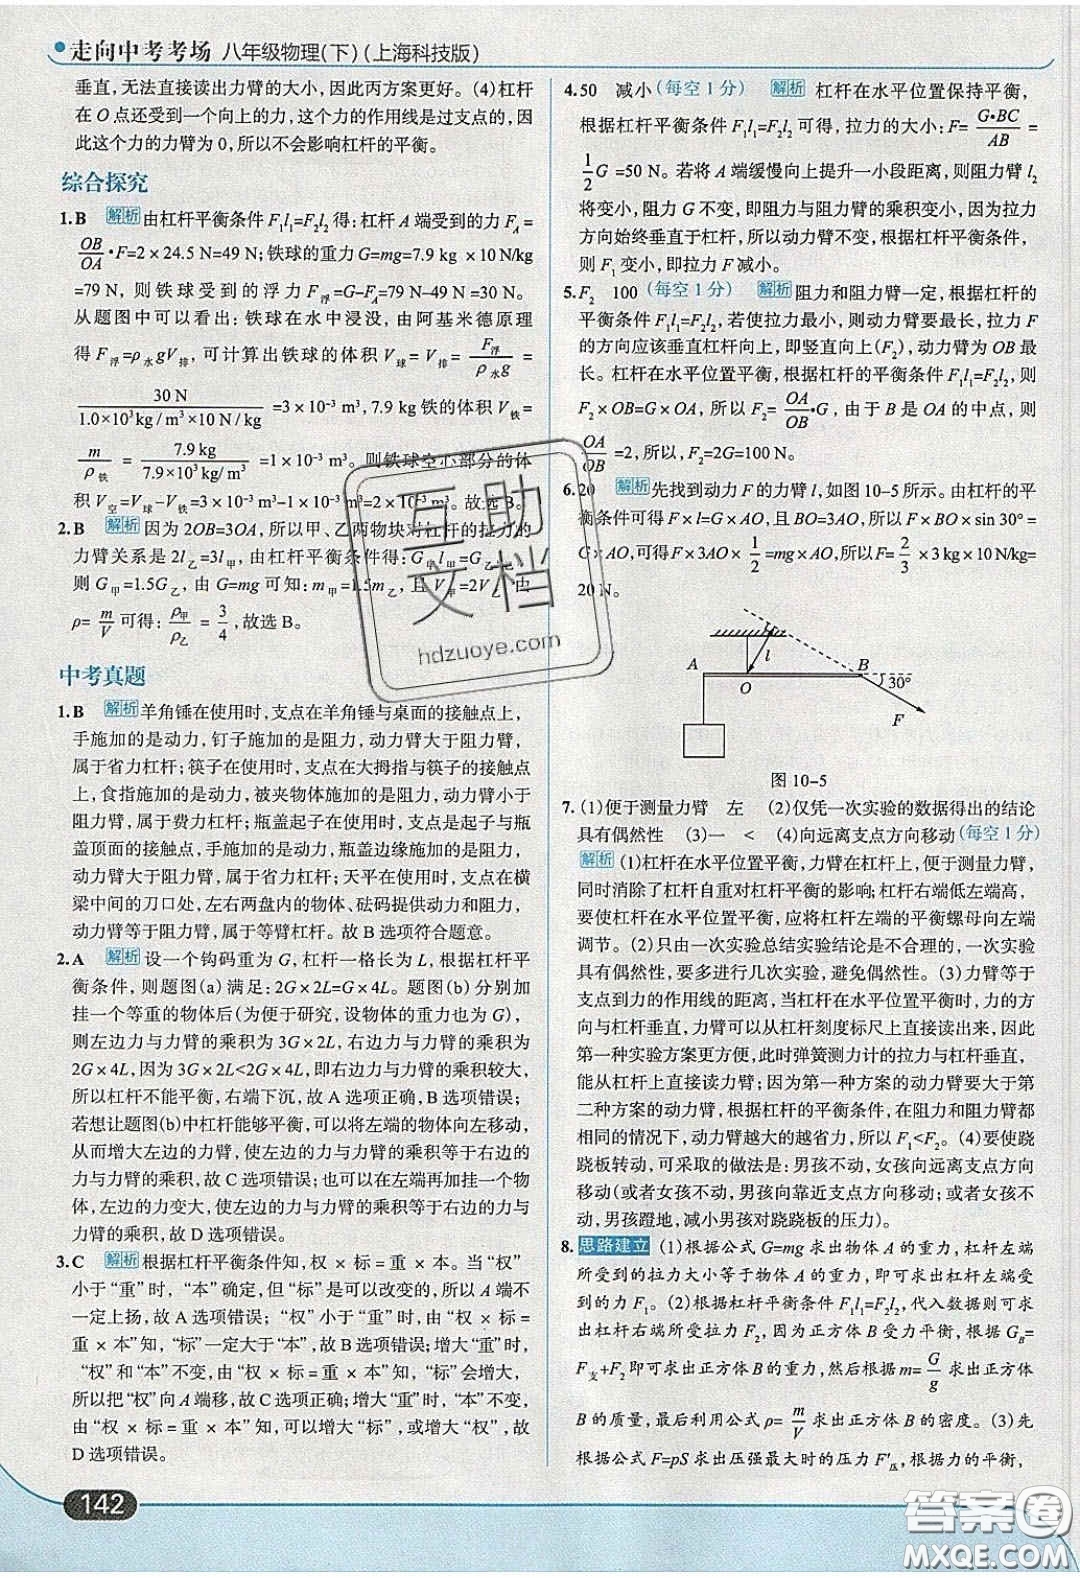 走向中考考场 八年级物理(下)(上海科技版)
垂直,无法直接读出力臂的大小,因此丙方案更好。(4)杠杆
在O点还受到一个向上的力,这个力的作用线是过支点的,因
此这个力的力臂为0,所以不会影响杠杆的平衡。
综合探究
1.B 解析 由杠杆平衡条件F₁l₁=F₂l₂得:杠杆A端受到的力F_A=
OB/OA•F=2×24.5 N=49 N;铁球的重力G=mg=7.9 kg ×10 N/kg
=79 N,则铁球受到的浮力F浮=G–F_A=79 N–49 N =30 N。
从题图中可以看出:铁球在水中浸没,由阿基米德原理
得F浮=ρ水gV排,可计算出铁球的体积V球=V排=F浮/ρ水g=
30 N/1.0×10³kg/m³×10 N/kg=3×10⁻³ m³,7.9 kg铁的体积V铁=
m/ρ铁=7.9 kg/7.9×10³kg/m³=1×10⁻³ m³。则铁球空心部分的体
积V空=V球–V铁=3×10⁻³ m³–1×10⁻³ m³=2×10⁻³ m³。故选B。
2.B 解析 因为2OB=3OA,所以甲、乙两物块对杠杆的拉力的
力臂关系是2l乙=3l甲,由杠杆平衡条件得:G甲l甲=G乙
则G甲=1.5G乙,由G=mg可知:m甲=1.5m乙,且V甲=2V乙,由
ρ=m/V可得:ρ甲/ρ乙=3/4,故选B。
中考真题
1.B 解析 羊角锤在使用时,支点在羊角锤与桌面的接触点上,
手施加的是动力,钉子施加的是阻力,动力臂大于阻力臂,
属于省力杠杆;筷子在使用时,支点在大拇指与筷子的接触点
上,食指施加的是动力,被夹物体施加的是阻力,动力臂小于
阻力臂,属于费力杠杆;瓶盖起子在使用时,支点是起子与瓶
盖顶面的接触点,手施加的是动力,瓶盖边缘施加的是阻力,
动力臂大于阻力臂,属于省力杠杆;天平在使用时,支点在横
梁中间的刀口处,左右两盘内的物体、砝码提供动力和阻力,
动力臂等于阻力臂,属于等臂杠杆。故B选项符合题意。
2.A 解析 设一个钩码重为G,杠杆一格长为L,根据杠杆平
衡条件,则题图(a)满足:2G×2L=G×4L。题图(b)分别加
挂一个等重的物体后(为便于研究,设物体的重力也为G),
则左边力与力臂的乘积为3G×2L,右边力与力臂的乘积为
2G×4L,因为3G×2L<2G×4L,即右边力与力臂的乘积较大,
所以杠杆不能平衡,右端下沉,故A选项正确,B选项错误;
若想让题图(b)中杠杆能够平衡,可以将左端的物体向左移动,
从而增大左边的力臂,使左边的力与力臂的乘积等于右边的
力与力臂的乘积,故C选项错误;也可以在左端再加挂一个物
体,左边的力变大,使左边的力与力臂的乘积等于右边的力与
力臂的乘积,故D选项错误。
3.C 解析 根据杠杆平衡条件知,权×标=重×本。当“权”
小于“重”时,“本”确定,但是“标”是可以改变的,所以A端不
一定上扬,故A选项错误;“权”小于“重”时,由“权×标=
重×本”知,“标”一定大于“本”,故B选项错误;增大“重”时,
“权”和“本”不变,由“权×标=重×本”知,“标”会增大,
所以把“权”向A端移,故C选项正确;增大“重”时,“本”不变,
由“权×标=重×本”知,可以增大“标”,或增大“权”,故
D选项错误。
142
4.50 减小(每空1分) 解析 杠杆在水平位置保持平衡,
根据杠杆平衡条件F₁l₁=F₂l₂可得,拉力的大小:F=G•BC/AB=
1/2G=50 N。若将A端缓慢向上提升一小段距离,则阻力臂l₂
将变小,阻力G不变,即阻力与阻力臂的乘积变小,因为拉力
方向始终垂直于杠杆,所以动力臂不变,根据杠杆平衡条件,
则F₁变小,即拉力F减小。
5.F₂ 100(每空1分) 解析 阻力和阻力臂一定,根据杠杆的
平衡条件F₁l₁=F₂l₂,若使拉力最小,则动力臂要最长,拉力F
的方向应该垂直杠杆向上,即竖直向上(F₂),动力臂为OB最
长。杠杆在水平位置平衡,根据杠杆的平衡条件F₁l₁=F₂l₂,则
F₂×OB=G×OA,所以F₂=OA/OB•G,由于B是OA的中点,则
OA/OB=2,所以,F₂=2G=100 N。
6.20 解析 先找到动力F的力臂l,如图10–5所示。由杠杆的平
衡条件可得F×l=G×AO,且BO=3AO,所以F×BO×sin 30°=
G×AO,可得F×3AO×1/2=mg×AO,所以F=2/3×3 kg×10 N/kg=
20 N。
A
O
l
B
30°
F
图10–5
7. (1)便于测量力臂 左 (2)仅凭一次实验的数据得出的结论
具有偶然性 (3)一 < (4)向远离支点方向移动(每空1分)
解析 (1)杠杆在水平位置平衡,力臂在杠杆上,便于测量力臂,
同时消除了杠杆自重对杠杆平衡的影响;杠杆右端低左端高,
要使杠杆在水平位置平衡,应将杠杆左端的平衡螺母向左端
调节。(2)只由一次实验总结实验结论是不合理的,一次实验
具有偶然性,需要多进行几次实验,避免偶然性。(3)力臂等于
支点到力的作用线的距离,当杠杆在水平位置平衡时,力的方
向与杠杆垂直,力臂可以从杠杆刻度标尺上直接读出来,因此
第一种实验方案更方便,此时弹簧测力计的拉力与杠杆垂直,
能从杠杆上直接读力臂;因为第一种方案的动力臂要大于第
二种方案的动力臂,根据杠杆的平衡条件,在阻力和阻力臂都
相同的情况下,动力臂越大的越省力,所以F₁<F₂。(4)要使跷
跷板转动,可采取的做法是:男孩不动,女孩向远离支点方向
移动(或者女孩不动,男孩向靠近支点方向移动;或者女孩不
动,男孩蹬地,减小男孩对跷跷板的压力)。
8. 思路建立 (1)根据公式G=mg求出物体A的重力,杠杆左端
所受到的拉力大小等于物体A的重力,即可求出杠杆左端受到
的力F₁。(2)根据杠杆平衡条件F₁l₁=F₂l₂,代入数据则可求
出杠杆右端所受拉力F₂,因为正方体B受力平衡,根据G_B=
F支+F₂即可求出正方体B的重力,然后根据m=G/g求出正方体
B的质量,最后利用公式ρ=m/V求出正方体B的密度。(3)先
根据公式F=pS求出压强最大时的压力F′压,根据力的平衡,
互助
文档
hdzuoye.com
答案卷
MXQE.COM